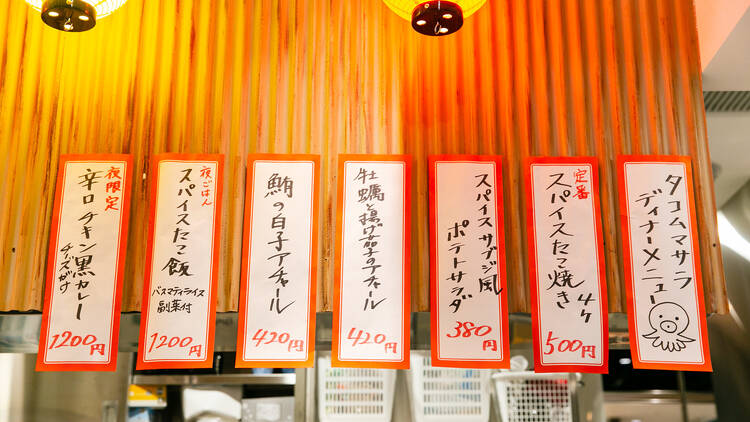 タコムマサラ
ディナーメニュー
定番
スパイスたこ焼き
4ヶ
500円
スパイスサブジ風
ポテトサラダ
380円
牡蠣と揚げ茄子のアチャール
420円
鮪の白子アチャール
420円
夜ごはん
スパイスたこ飯
バスマティライス
副菜付
1200円
夜限定
辛口チキン黒カレー
チーズがけ
1200円